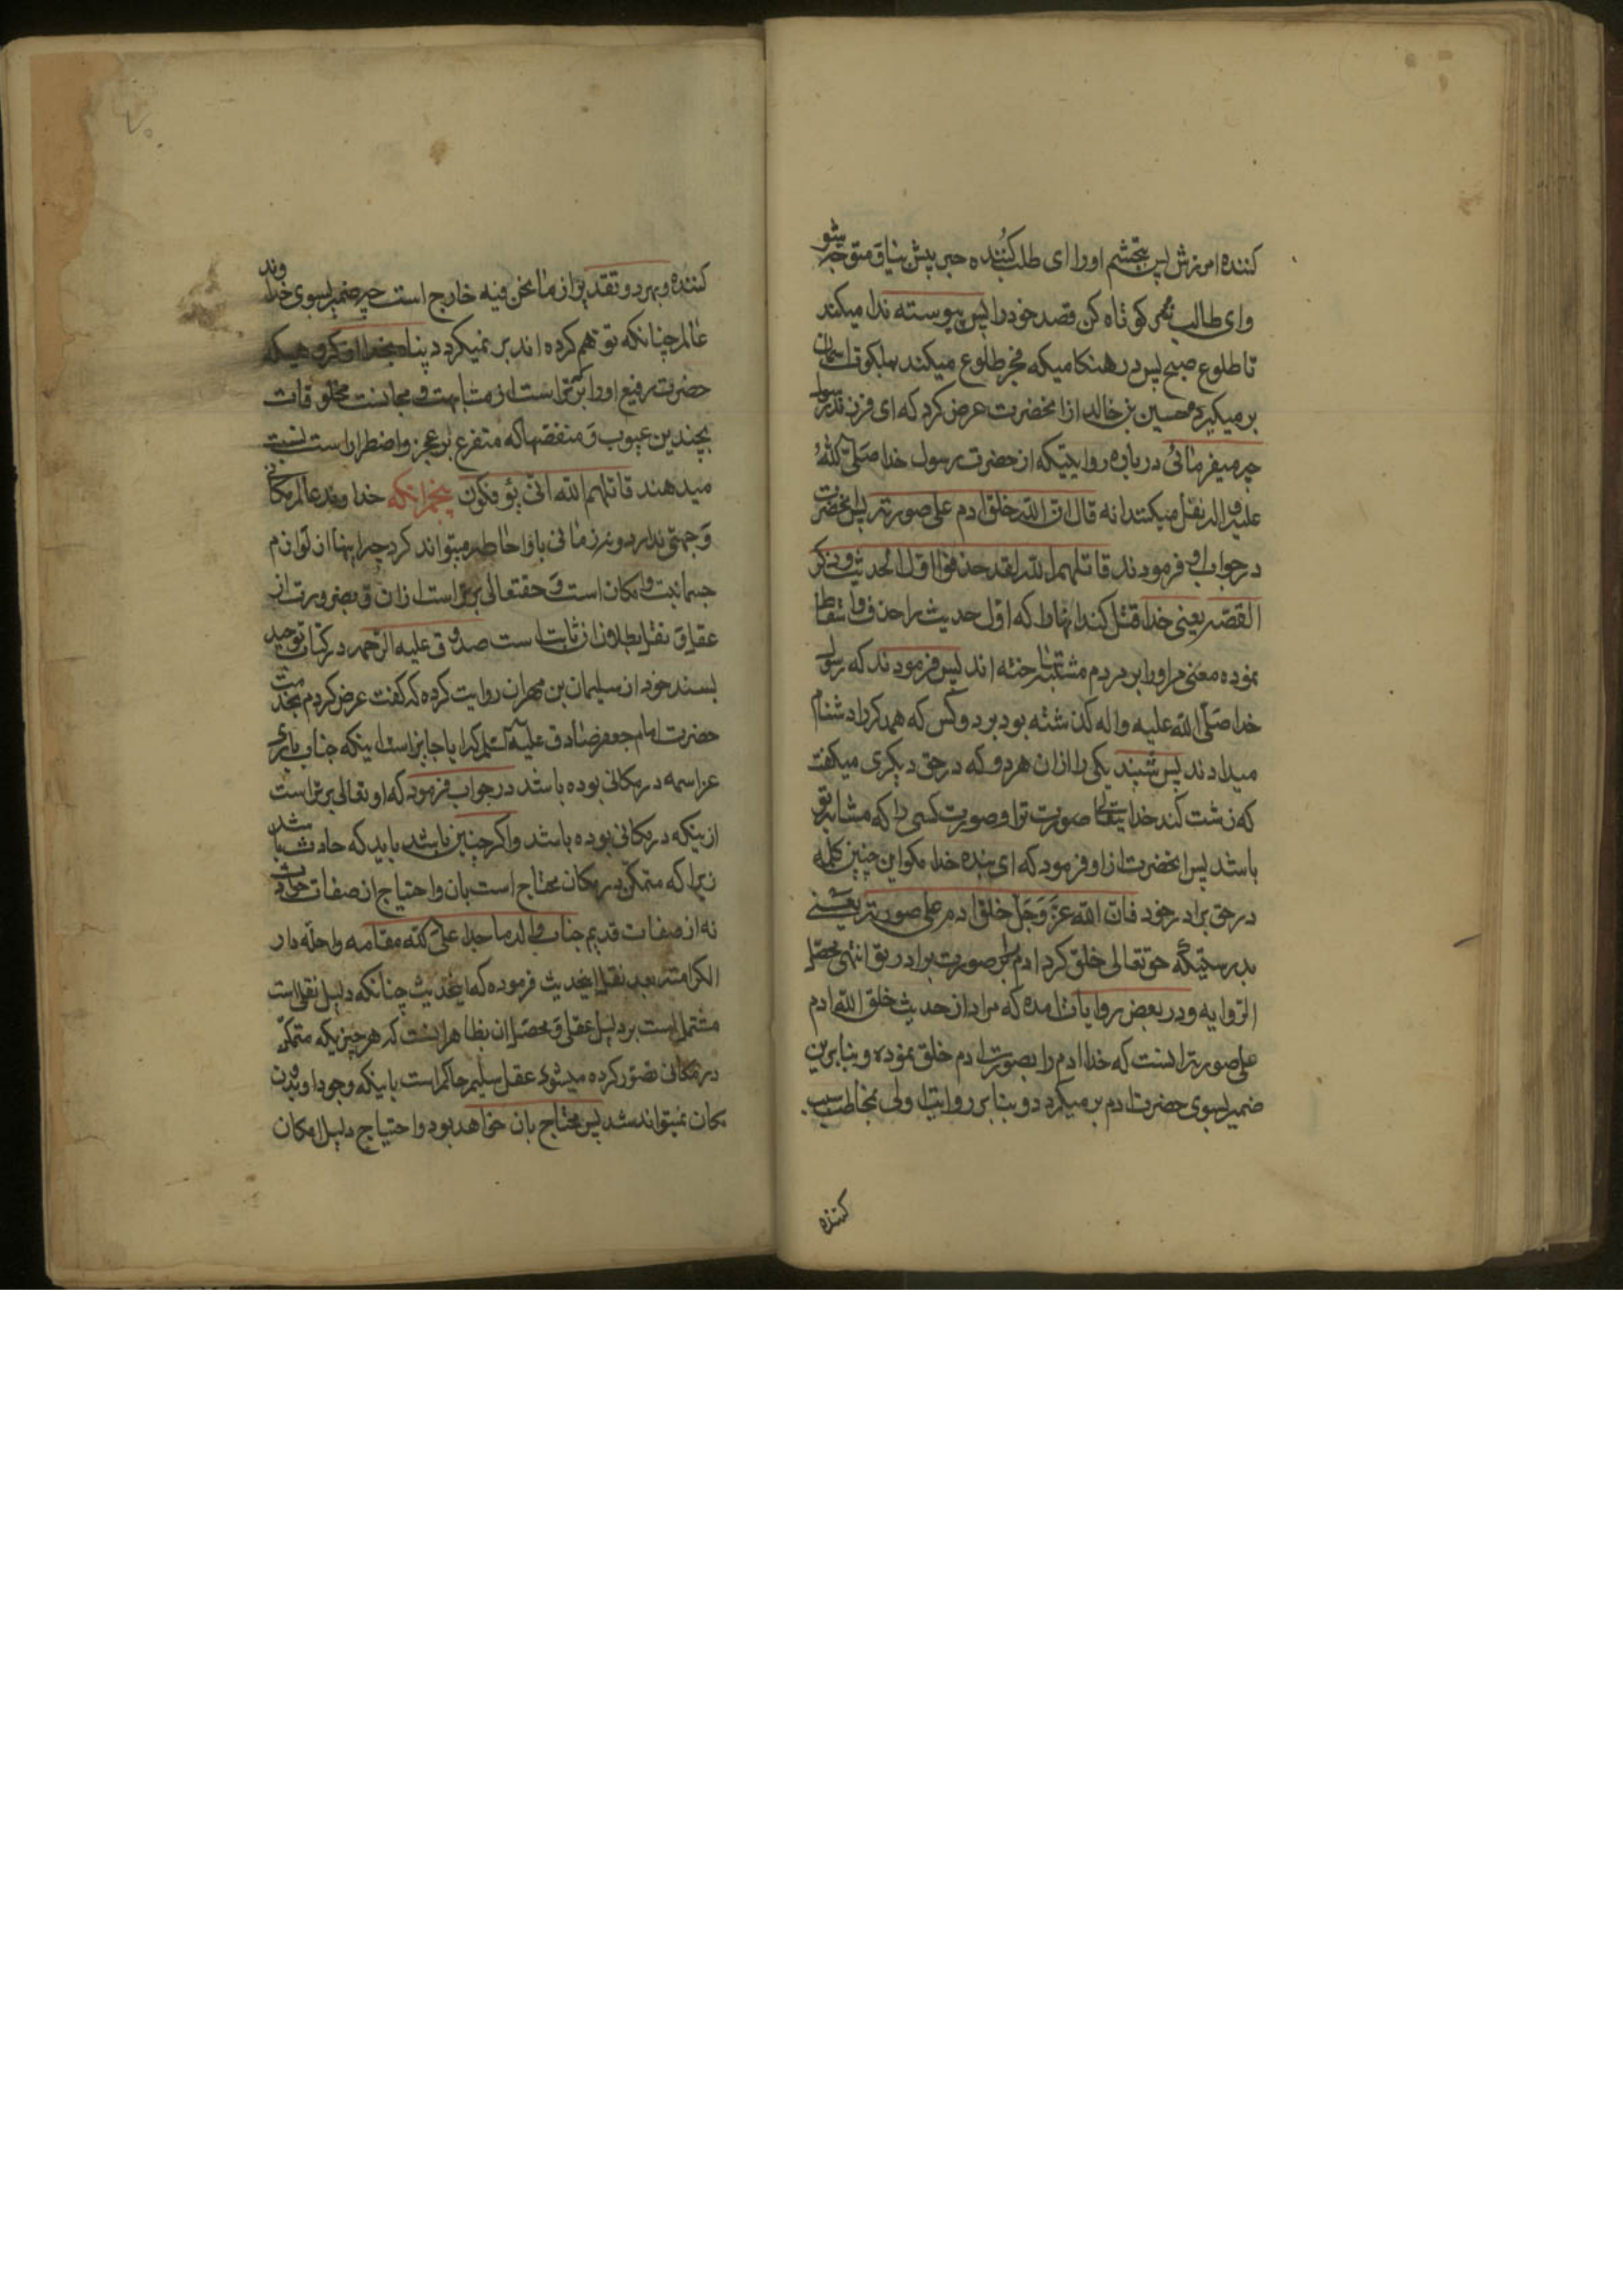 کننده امرزش پس ببخشم او را ای طلب کننده خیر پیش بیا و متوجه شو
و ای طالب شر کوتاه کن قصد خود را پس پیوسته ندا میکند
تا طلوع صبح پس در هنکامیکه فجر طلوع میکند بملکوت اسمان
بر میکردد حسین بن خالد از انحضرت عرض کرد که ای فرزند رسول
چه میفرمائی در باره روایتیکه از حضرت رسول خدا صلی الله
علیه و اله نقل میکنند انه قال ان الله خلق ادم علی صورته پس انحضرت
در جواب او فرمودند قاتلهم الله لقد حذفوا اول الحدیث و ذکر
القصه یعنی خدا قتل کند انها را که اول حدیث را حذف و اسقاط
نموده معنی مراد را بر مردم مشتبه ساخته اند پس فرمودند که رسول
خدا صلی الله علیه و اله کذشته بود بر دو کس که همدکر را دشنام
میدادند پس شنید یکی را از ان هر دو که در حق دیکری میکفت
که زشت کند خدایتعالی صورت ترا و صورت کسی را که مشابه تو
باشد پس انحضرت از او فرمود که ای بنده خدا مکو این چنین کلمه
در حق برادر خود فان الله عز و جل خلق ادم علی صورته یعنی
بدرستیکه حق تعالی خلق کرد ادم را بر صورت برادر تو انتهی محصل
الروایه و در بعض روایات امده که مراد از حدیث خلق الله ادم
علی صورته اینست که خدا ادم را بصورت ادم خلق نموده و بنا برین
ضمیر بسوی حضرت ادم بر میکردد و بنا بر روایت اولی بمخاطب سب
کننده
کننده و بهر دو تقدیر از ما نحن فیه خارج است چه ضمیر بسوی خداوند
عالم چنانکه توهم کرده اند بر نمیکردد پناه بخدا از کروهیکه
حضرت رفیع او را که برتر است از مشابهت و مجانست مخلوقات
بچندین عیوب و منقصتها که متفرع بر عجز و اضطرار است نسبت
میدهند قاتلهم الله انی یؤفکون پنجم انکه خداوند عالم مکانی
و جهتی ندارد و نه زمانی باو احاطه میتواند کرد چه اینها از لوازم
جسمانیت و امکان است و حقتعالی برتر است از ان و بضرورت از
عقل و نقل بطلان ان ثابت است صدوق علیه الرحمه در کتاب توحید
بسند خود از سلیمان بن مهران روایت کرده که کفت عرض کردم بخدمت
حضرت امام جعفر صادق علیه السلام که ایا جایز است اینکه جناب باری
عز اسمه در مکانی بوده باشد در جواب فرمود که او تعالی برتر است
از ینکه در مکانی بوده باشد و اکر چنین باشد باید که حادث باشد
زیرا که متمکن در مکان محتاج است بان و احتیاج از صفات حادث
نه از صفات قدیم جناب والد ماجد اعلی الله مقامه و احله دار
الکرامته بعد نقل اینحدیث فرموده که اینحدیث چنانکه دلیل نقلی است
مشتمل است بر دلیل عقلی و محصل ان بظاهر اینست که هر چیزیکه متمکن
در مکانی تصور کرده میشود عقل سلیم حاکم است باینکه وجود او بدون
مکان نمیتواند شد پس محتاج بان خواهد بود و احتیاج دلیل امکان